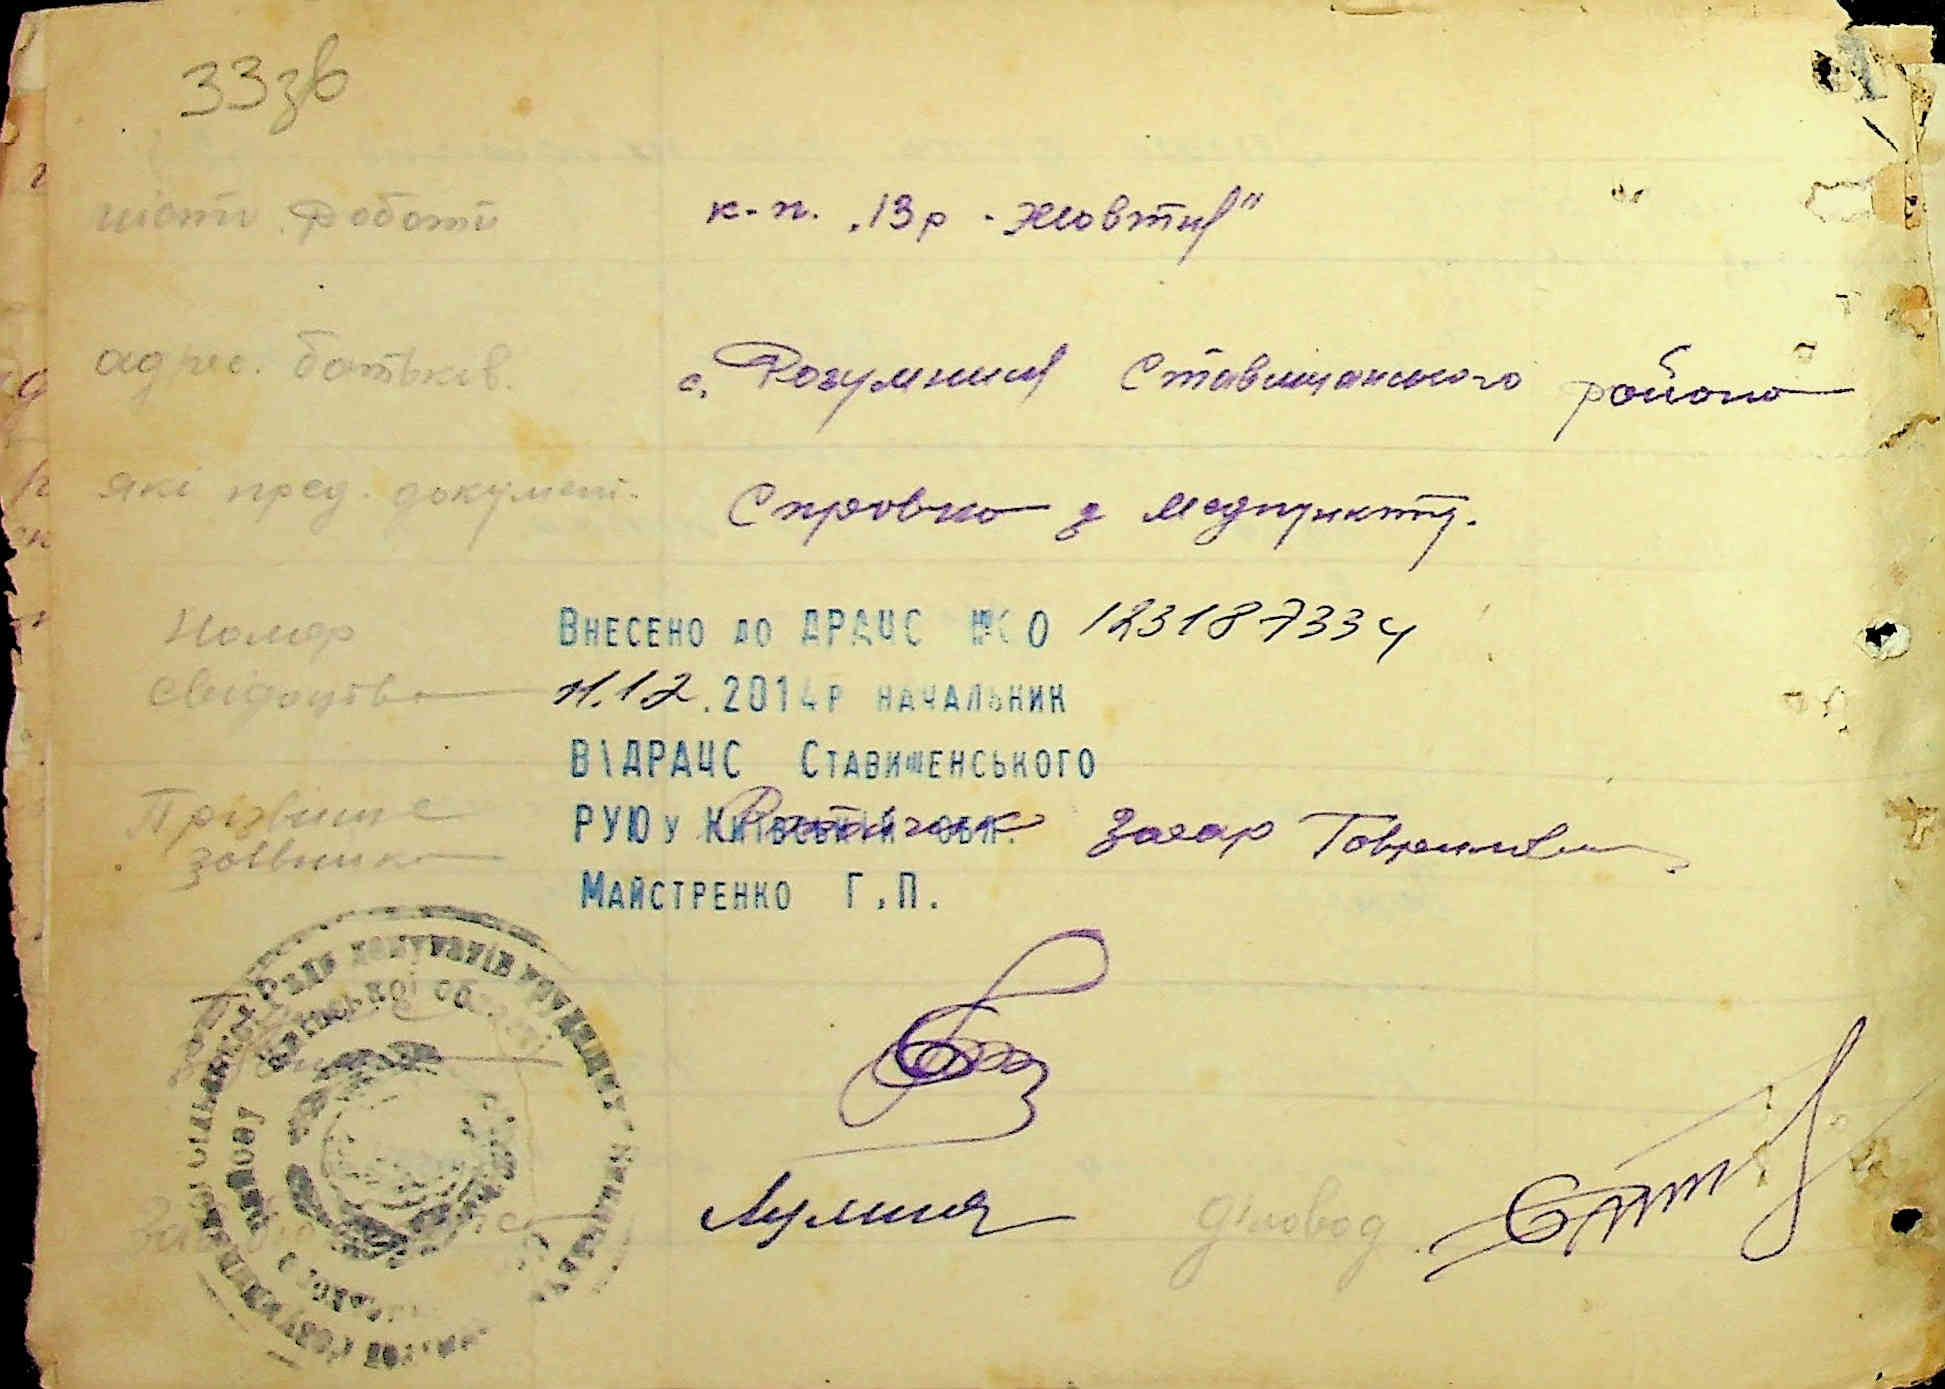 33зв
місти роботи к-п. „13р - Жовтня"
адрес. батьків. с. Розумниця Ставищанського району
які пред. документ. Справка з медпункту.
Номер ВНЕСЕНО ДО ДРАЦС № 0 123187334
свідоцтва 11.12.2014Р НАЧАЛЬНИК
В\ДРАЦС СТАВИЩЕНСЬКОГО
Прізвище РУЮ У КИЇВСЬКІЙ ОБЛ. Захар Гаврилович
заявника
МАЙСТРЕНКО Г.П.
Рада депутатів трудящих
Київської області
району
діловод